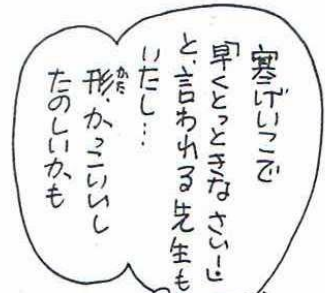 寒げいこで
「早くとっときなさい!」
と、言われる先生も
いたし…
形、かっこいいし
かた
たのしいかも